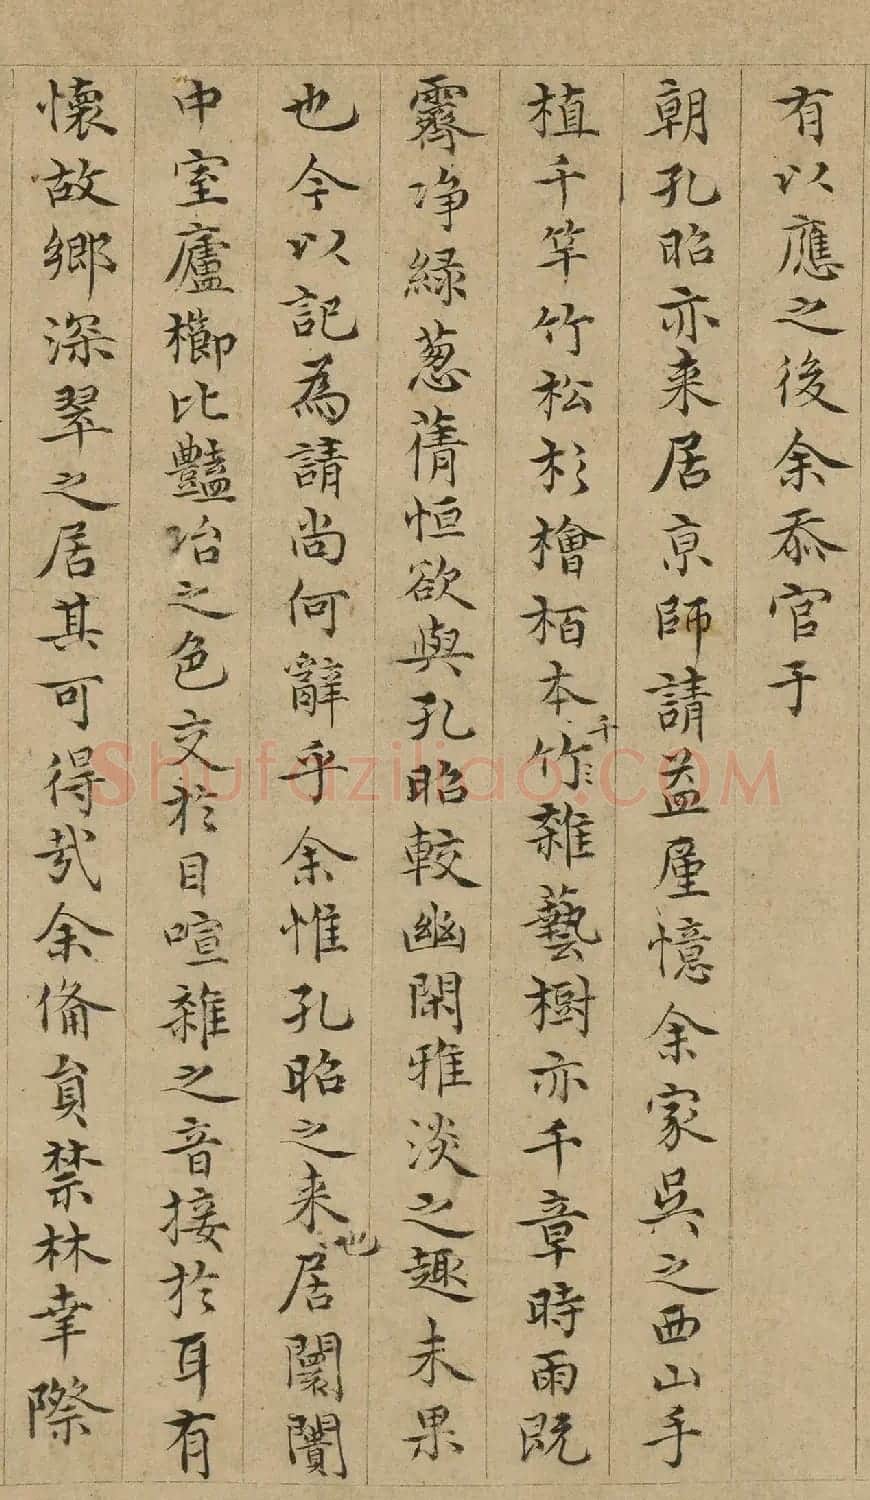 有以應之後余忝官于
朝孔昭亦来居京師請益廑憶余家吳之西山手
植千竿竹松杉檜栢本千竹雜藝樹亦千章時雨既
霽浄緑葱蒨恒欲與孔昭較幽閑雅淡之趣未果
也今以記為請尚何辭乎余惟孔昭之来也居闤闠
中室廬櫛比豔冶之色交於目喧雜之音接於耳有
懷故鄉深翠之居其可得哉余俻員禁林幸際
Shufaziliao.COM